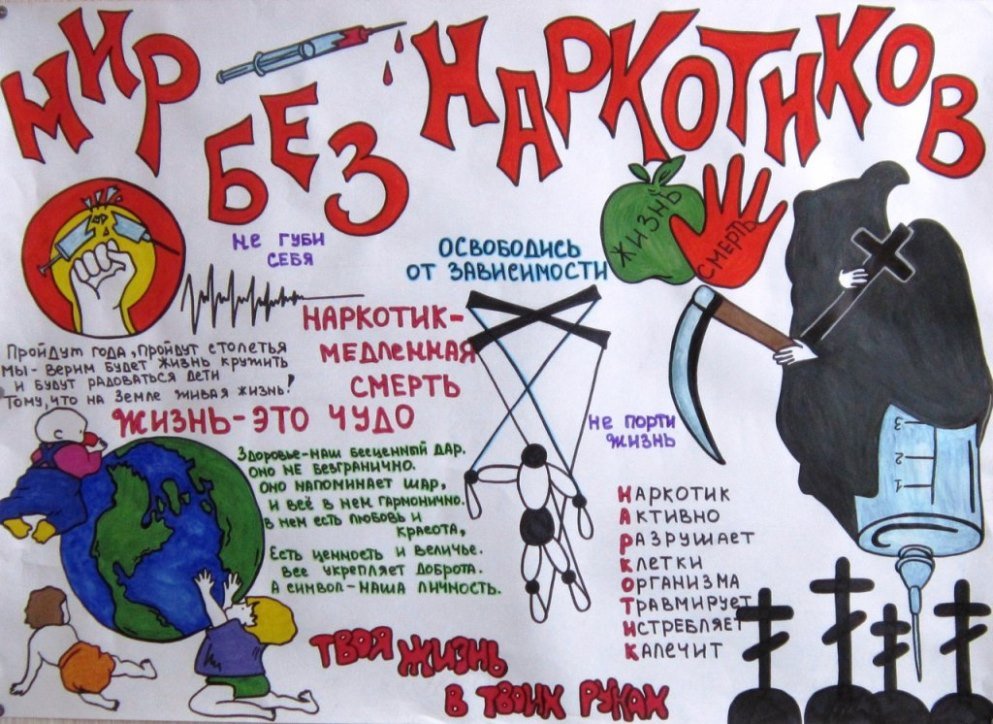 МИР БЕЗ НАРКОТИКОВ
НЕ ГУБИ
СЕБЯ
ОСВОБОДИСЬ
ОТ ЗАВИСИМОСТИ
ЖИЗНЬ
СМЕРТЬ
НАРКОТИК-
МЕДЛЕННАЯ
СМЕРТЬ
Пройдут года, пройдут столетья
Мы - верим будет жизнь кружить
и будут радоваться дети
Тому, что на Земле живая жизнь!
ЖИЗНЬ-ЭТО ЧУДО
Здоровье-наш бесценный дар.
Оно не безгранично.
Оно напоминает шар,
и всё в нем гармонично.
В нем есть любовь и
красота,
Есть ценность и величье.
Все укрепляет доброта.
А символ-наша личность.
НЕ ПОРТИ
ЖИЗНЬ
НАРКОТИК
АКТИВНО
РАЗРУШАЕТ
КЛЕТКИ
ОРГАНИЗМА
ТРАВМИРУЕТ
ИСТРЕБЛЯЕТ
КАЛЕЧИТ
3
2
1
ТВОЯ ЖИЗНЬ
В ТВОИХ РУКАХ